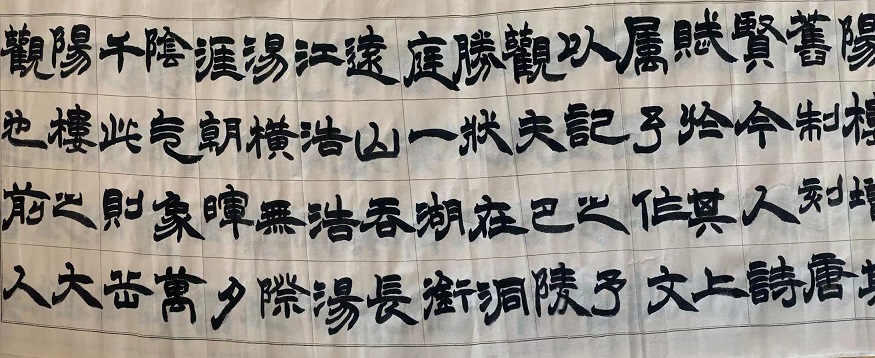 陽樓增其
舊制刻唐
賢今人詩
賦於其上
属予作文
以記之予
觀夫巴陵
勝狀在洞
庭一湖銜
遠山吞長
江浩浩湯
湯橫無際
涯朝暉夕
陰气象萬
千此則岳
陽樓之大
觀也前人